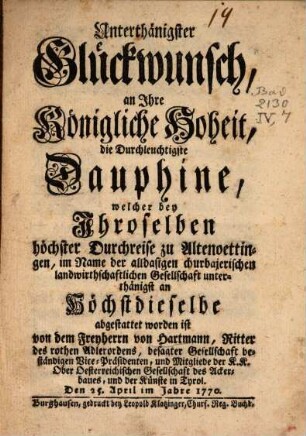 19
Unterthänigster
Glückwunsch,
an Ihre
Königliche Hoheit,
die Durchleuchtigste
Dauphine,
welcher bey
Ihroselben
höchster Durchreise zu Altenoettin-
gen, im Name der alldasigen churbajerischen
landwirthschaftlichen Gesellschaft unter-
thänigst an
Höchstdieselbe
abgestattet worden ist
von dem Freyherrn von Hartmann, Ritter
des rothen Adlerordens, besagter Gesellschaft be-
ständigen Vice-Präsidenten, und Mitgliede der K.K.
Ober Oesterreichischen Gesellschaft des Acker-
baues, und der Künste in Tyrol.
Den 25. April im Jahre 1770.
Burghausen, gedruckt bey Leopold Klatzinger, Churf. Reg. Buchd.
Bav
2130
IV,7